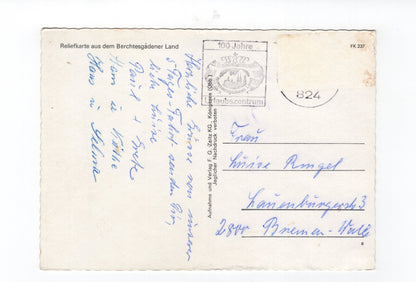 Reliefkarte aus dem Berchtesgadener Land
FK 237
100 Jahre
Urlaubszentrum
824
Herzliche Grüsse von unserer
5 Tages-Fahrt senden Dir,
liebe Luise
Paul +
Hans u
Hans u Selma
Aufnahme und Verlag F. G. Zeitz KG., Königssee/Obb.
Jeglicher Nachdruck verboten
Frau
Luise Ringel
Lauenburgerstr 3
2800 Bremen-Walle